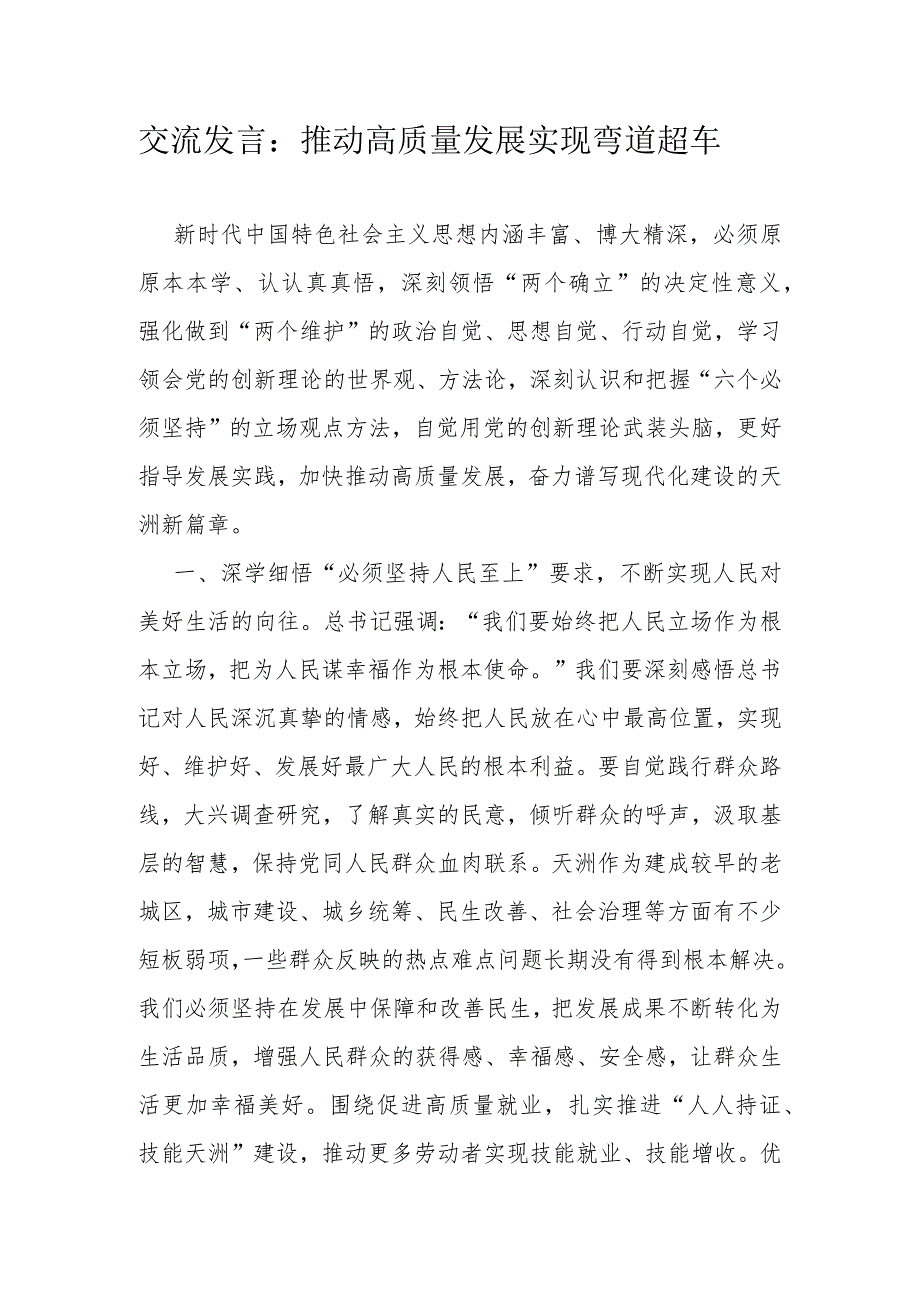 交流发言：推动高质量发展实现弯道超车
新时代中国特色社会主义思想内涵丰富、博大精深，必须原
原本本学、认认真真悟，深刻领悟“两个确立”的决定性意义，
强化做到“两个维护”的政治自觉、思想自觉、行动自觉，学习
领会党的创新理论的世界观、方法论，深刻认识和把握“六个必
须坚持”的立场观点方法，自觉用党的创新理论武装头脑，更好
指导发展实践，加快推动高质量发展，奋力谱写现代化建设的天
洲新篇章。
一、深学细悟“必须坚持人民至上”要求，不断实现人民对
美好生活的向往。总书记强调：“我们要始终把人民立场作为根
本立场，把为人民谋幸福作为根本使命。”我们要深刻感悟总书
记对人民深沉真挚的情感，始终把人民放在心中最高位置，实现
好、维护好、发展好最广大人民的根本利益。要自觉践行群众路
线，大兴调查研究，了解真实的民意，倾听群众的呼声，汲取基
层的智慧，保持党同人民群众血肉联系。天洲作为建成较早的老
城区，城市建设、城乡统筹、民生改善、社会治理等方面有不少
短板弱项，一些群众反映的热点难点问题长期没有得到根本解决。
我们必须坚持在发展中保障和改善民生，把发展成果不断转化为
生活品质，增强人民群众的获得感、幸福感、安全感，让群众生
活更加幸福美好。围绕促进高质量就业，扎实推进“人人持证、
技能天洲”建设，推动更多劳动者实现技能就业、技能增收。优